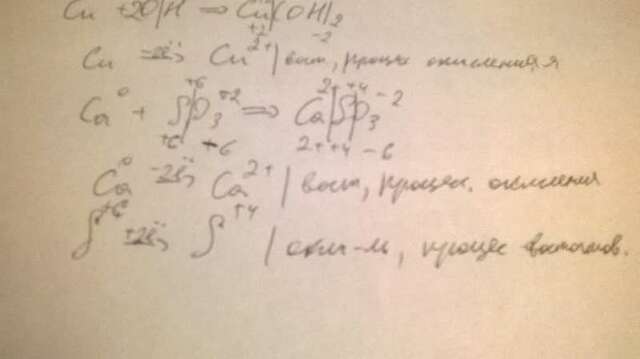 Cu + 2O|H ⇒ Cu|(OH)₂
+2 -2
Cu -2ē→ Cu²⁺ | восст, процес окисления
Ca⁰ + S⁺⁶|O₃⁺² ⇒ Ca²⁺|S⁺⁴|O₃⁻²
+6 -6 2+ +4 -6
Ca⁰ -2ē→ Ca²⁺ | восст, процесс. окисления
S⁺⁶ +2ē→ S⁺⁴ | окис-ль, процес восстанов.